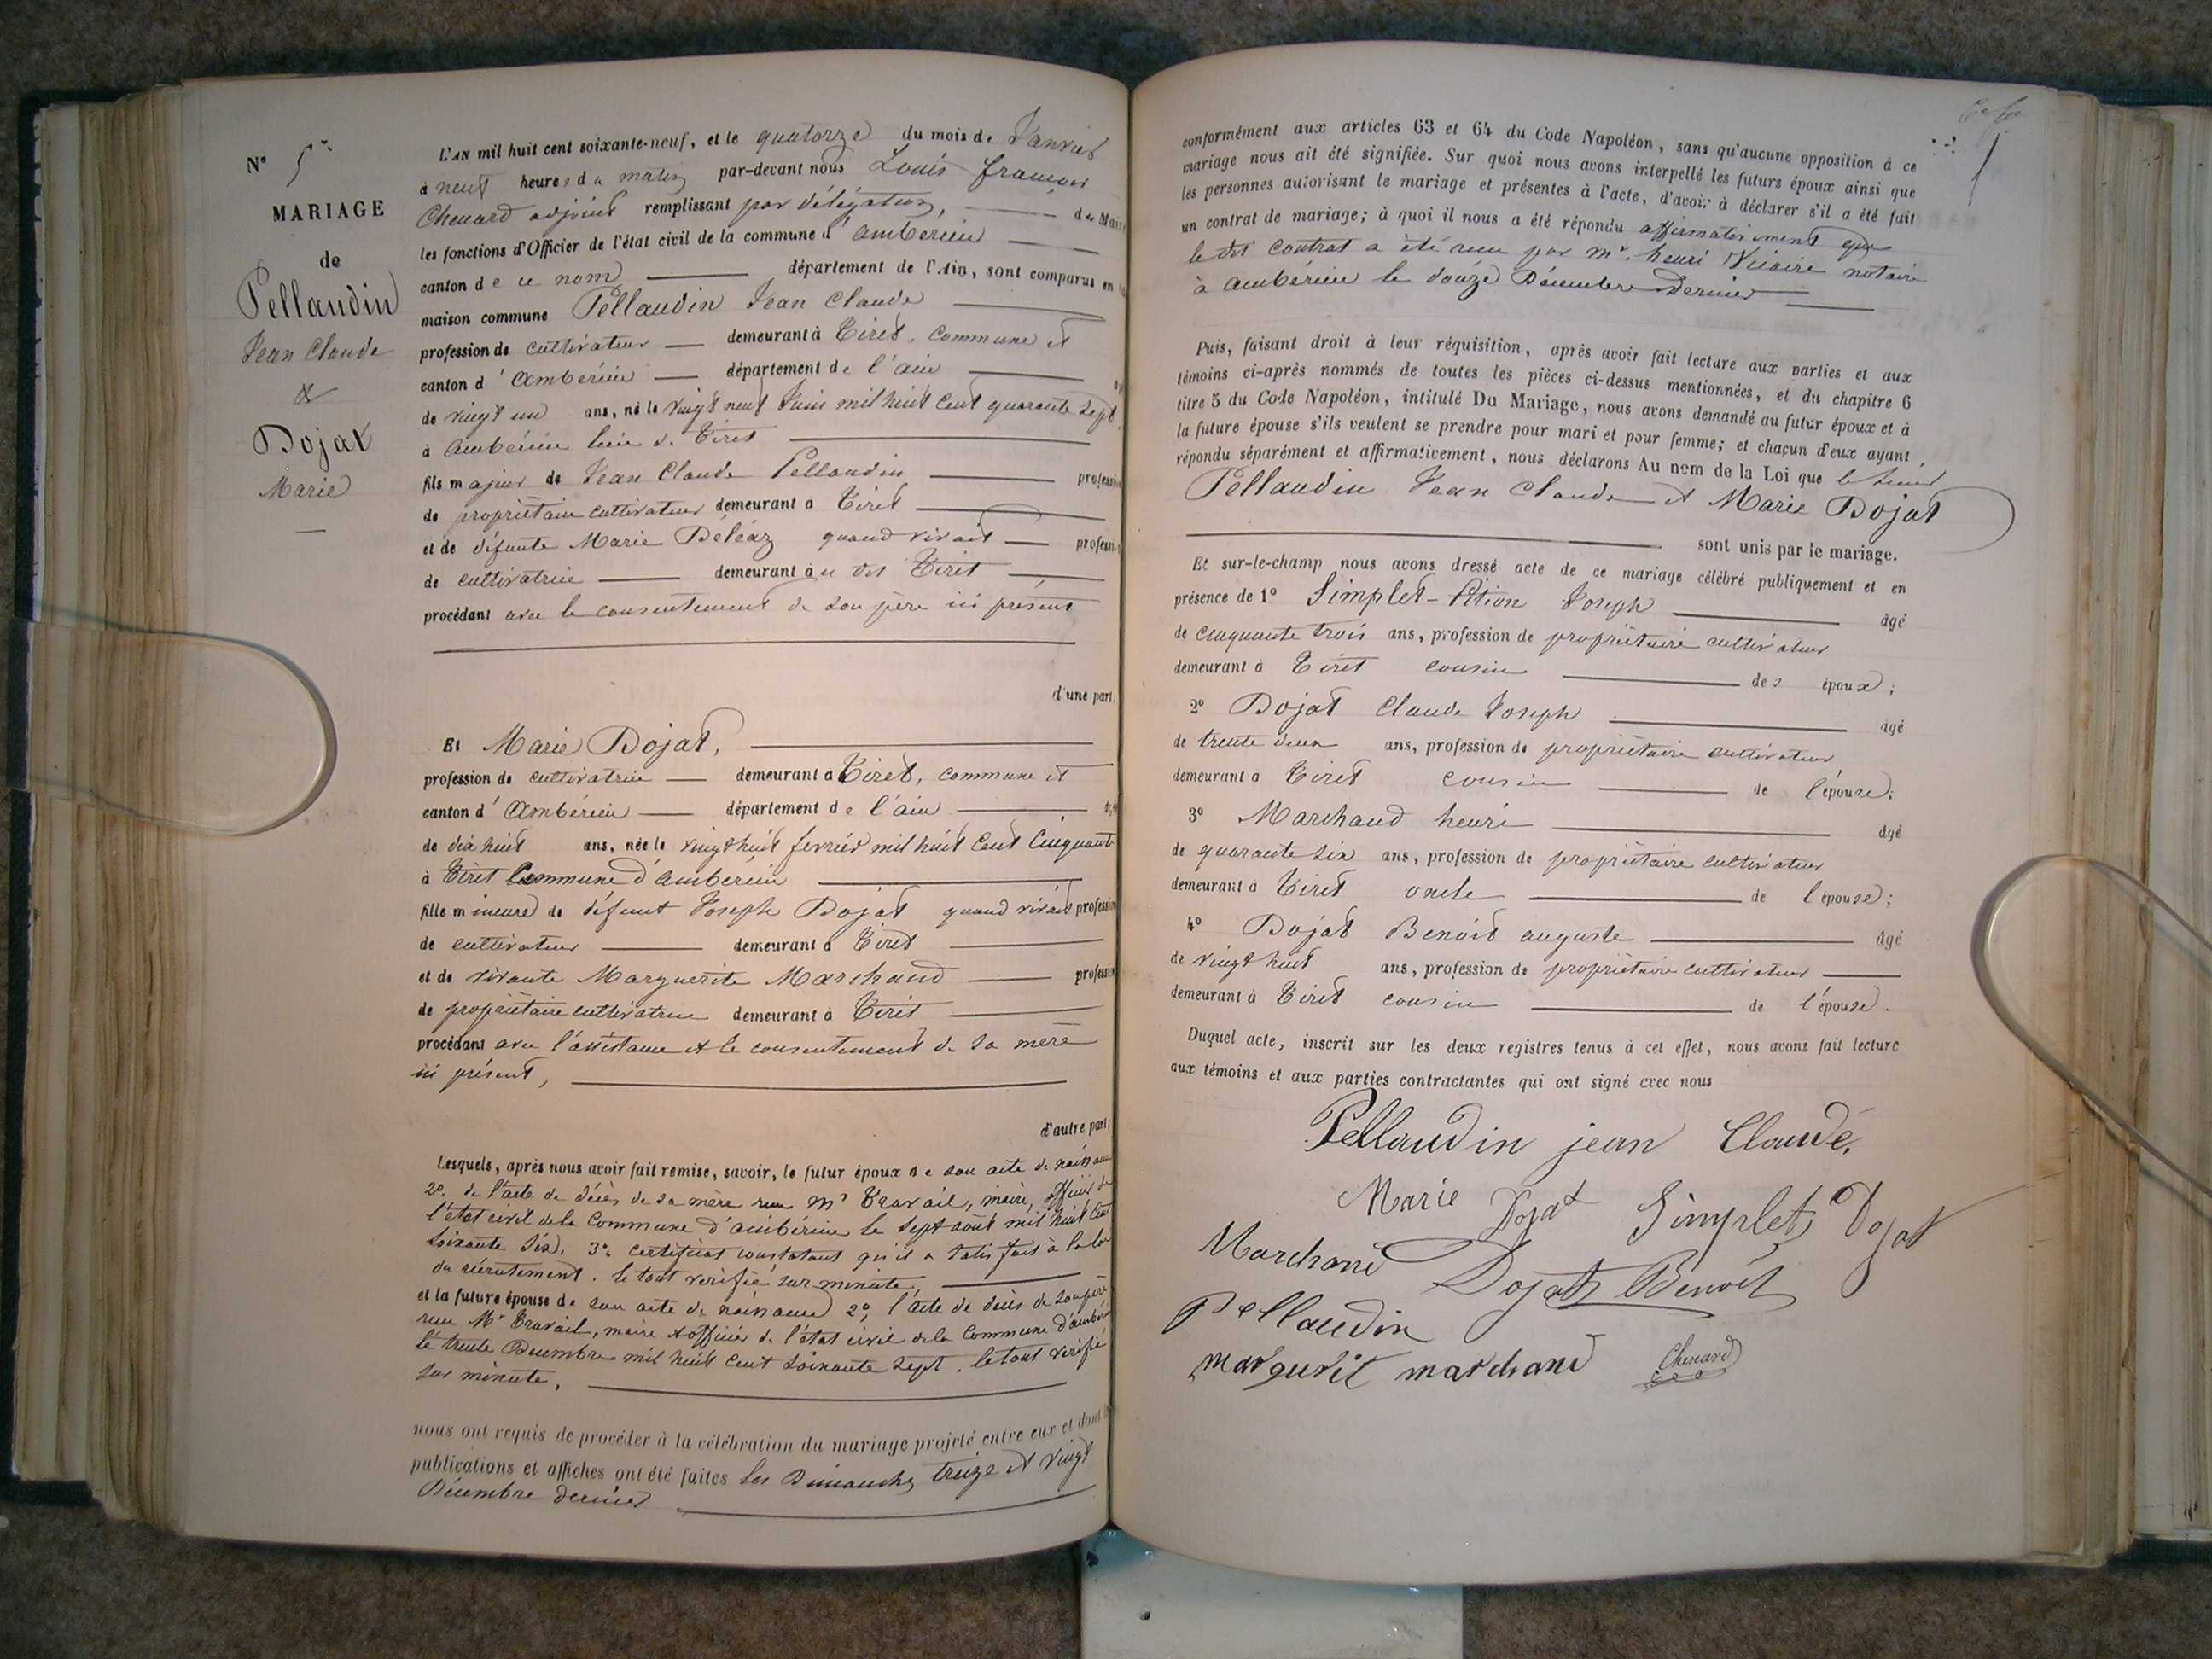 N° 5
MARIAGE
de
Pellaudin
Jean Claude
&
Dojat
Marie
L'AN mil huit cent soixante-neuf, et le quatorze du mois de Janvier
à neuf heures du matin par-devant nous Louis françois
Chenard adjoint remplissant par délégation, du Maire
les fonctions d'Officier de l'état civil de la commune d'ambérieu
canton de ce nom département de l'Ain, sont comparus en
maison commune Pellaudin Jean Claude
profession de cultivateur demeurant à Tiret, commune et
canton d'Ambérieu département de l'ain
de vingt un ans, né le vingt neuf Juin mil huit cent quarante sept
à ambérieu lieu de Tiret
fils majeur de Jean Claude Pellaudin profession
de propriétaire cultivateur demeurant à Tiret
et de défunte Marie Déléaz quand vivait profession
de cultivatrice demeurant à Tiret
procédant avec le consentement de son père ici présent
d'une part;
Et Marie Dojat,
profession de cultivatrice demeurant à Tiret, commune et
canton d'Ambérieu département de l'ain
de dix huit ans, née le vingt huit fevrier mil huit cent Cinquante
à Tiret Commune d'ambérieu
fille mineure de défunt Joseph Dojat quand vivait profession
de cultivateur demeurant à Tiret
et de vivante Marguerite Marchand profession
de propriétaire cultivatrice demeurant à Tiret
procédant avec l'assistance et le consentement de sa mère
ici présent,
d'autre part;
Lesquels, après nous avoir fait remise, savoir, le futur époux de son acte de naissance
2° de l'acte de décès de sa mère reçu Mr Travail, maire, officier de
l'état civil de la Commune d'ambérieu le sept août mil huit cent
soixante six, 3° certificat constatant qu'il a satisfait à la loi
du recrutement. le tout vérifié sur minute,
et la future épouse de son acte de naissance 2°, l'acte de décès de son père
reçu Mr Travail, maire et officier de l'état civil de la Commune d'ambérieu
le trente Décembre mil huit cent soixante sept. le tout vérifié
sur minute,
nous ont requis de procéder à la célébration du mariage projeté entre eux et dont les
publications et affiches ont été faites les Dimanches treize et vingt
Décembre dernier
conformément aux articles 63 et 64 du Code Napoléon, sans qu'aucune opposition à ce
mariage nous ait été signifiée. Sur quoi nous avons interpellé les futurs époux ainsi que
les personnes autorisant le mariage et présentes à l'acte, d'avoir à déclarer s'il a été fait
un contrat de mariage; à quoi il nous a été répondu affirmativement que
le dit contrat a été reçu par Mr. henri notaire
à ambérieu le douze Décembre dernier
Puis, faisant droit à leur réquisition, après avoir fait lecture aux parties et aux
témoins ci-après nommés de toutes les pièces ci-dessus mentionnées, et du chapitre 6
titre 5 du Code Napoléon, intitulé Du Mariage, nous avons demandé au futur époux et à
la future épouse s'ils veulent se prendre pour mari et pour femme; et chacun d'eux ayant
répondu séparément et affirmativement, nous déclarons Au nom de la Loi que le sieur
Pellaudin Jean Claude et Marie Dojat
sont unis par le mariage.
Et sur-le-champ nous avons dressé acte de ce mariage célébré publiquement et en
présence de 1° Simplet-Pition Joseph âgé
de cinquante trois ans, profession de propriétaire cultivateur
demeurant à Tiret cousin des époux;
2° Dojat Claude Joseph âgé
de trente deux ans, profession de propriétaire cultivateur
demeurant à Tiret cousin de l'épouse;
3° Marchand henri âgé
de quarante six ans, profession de propriétaire cultivateur
demeurant à Tiret oncle de l'épouse;
4° Dojat Benoit auguste âgé
de vingt huit ans, profession de propriétaire cultivateur
demeurant à Tiret cousin de l'épouse.
Duquel acte, inscrit sur les deux registres tenus à cet effet, nous avons fait lecture
aux témoins et aux parties contractantes qui ont signé avec nous
Pellaudin jean Claude,
Marie Dojat Simplet Dojat
Marchand Dojat Benoit
Pellaudin
margurit marchand Chenard